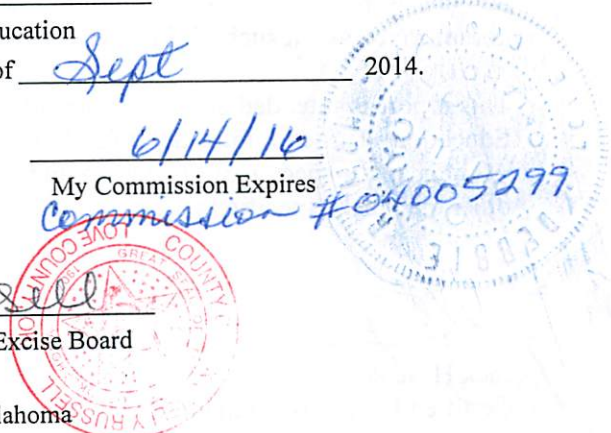 ucation
of Sept 2014.
6/14/16
My Commission Expires
Commission #04005299
sell
Excise Board
lahoma
COUNTY
LOVE COUNTY
GREAT SEAL
Y RUSSELL
DEBBIE